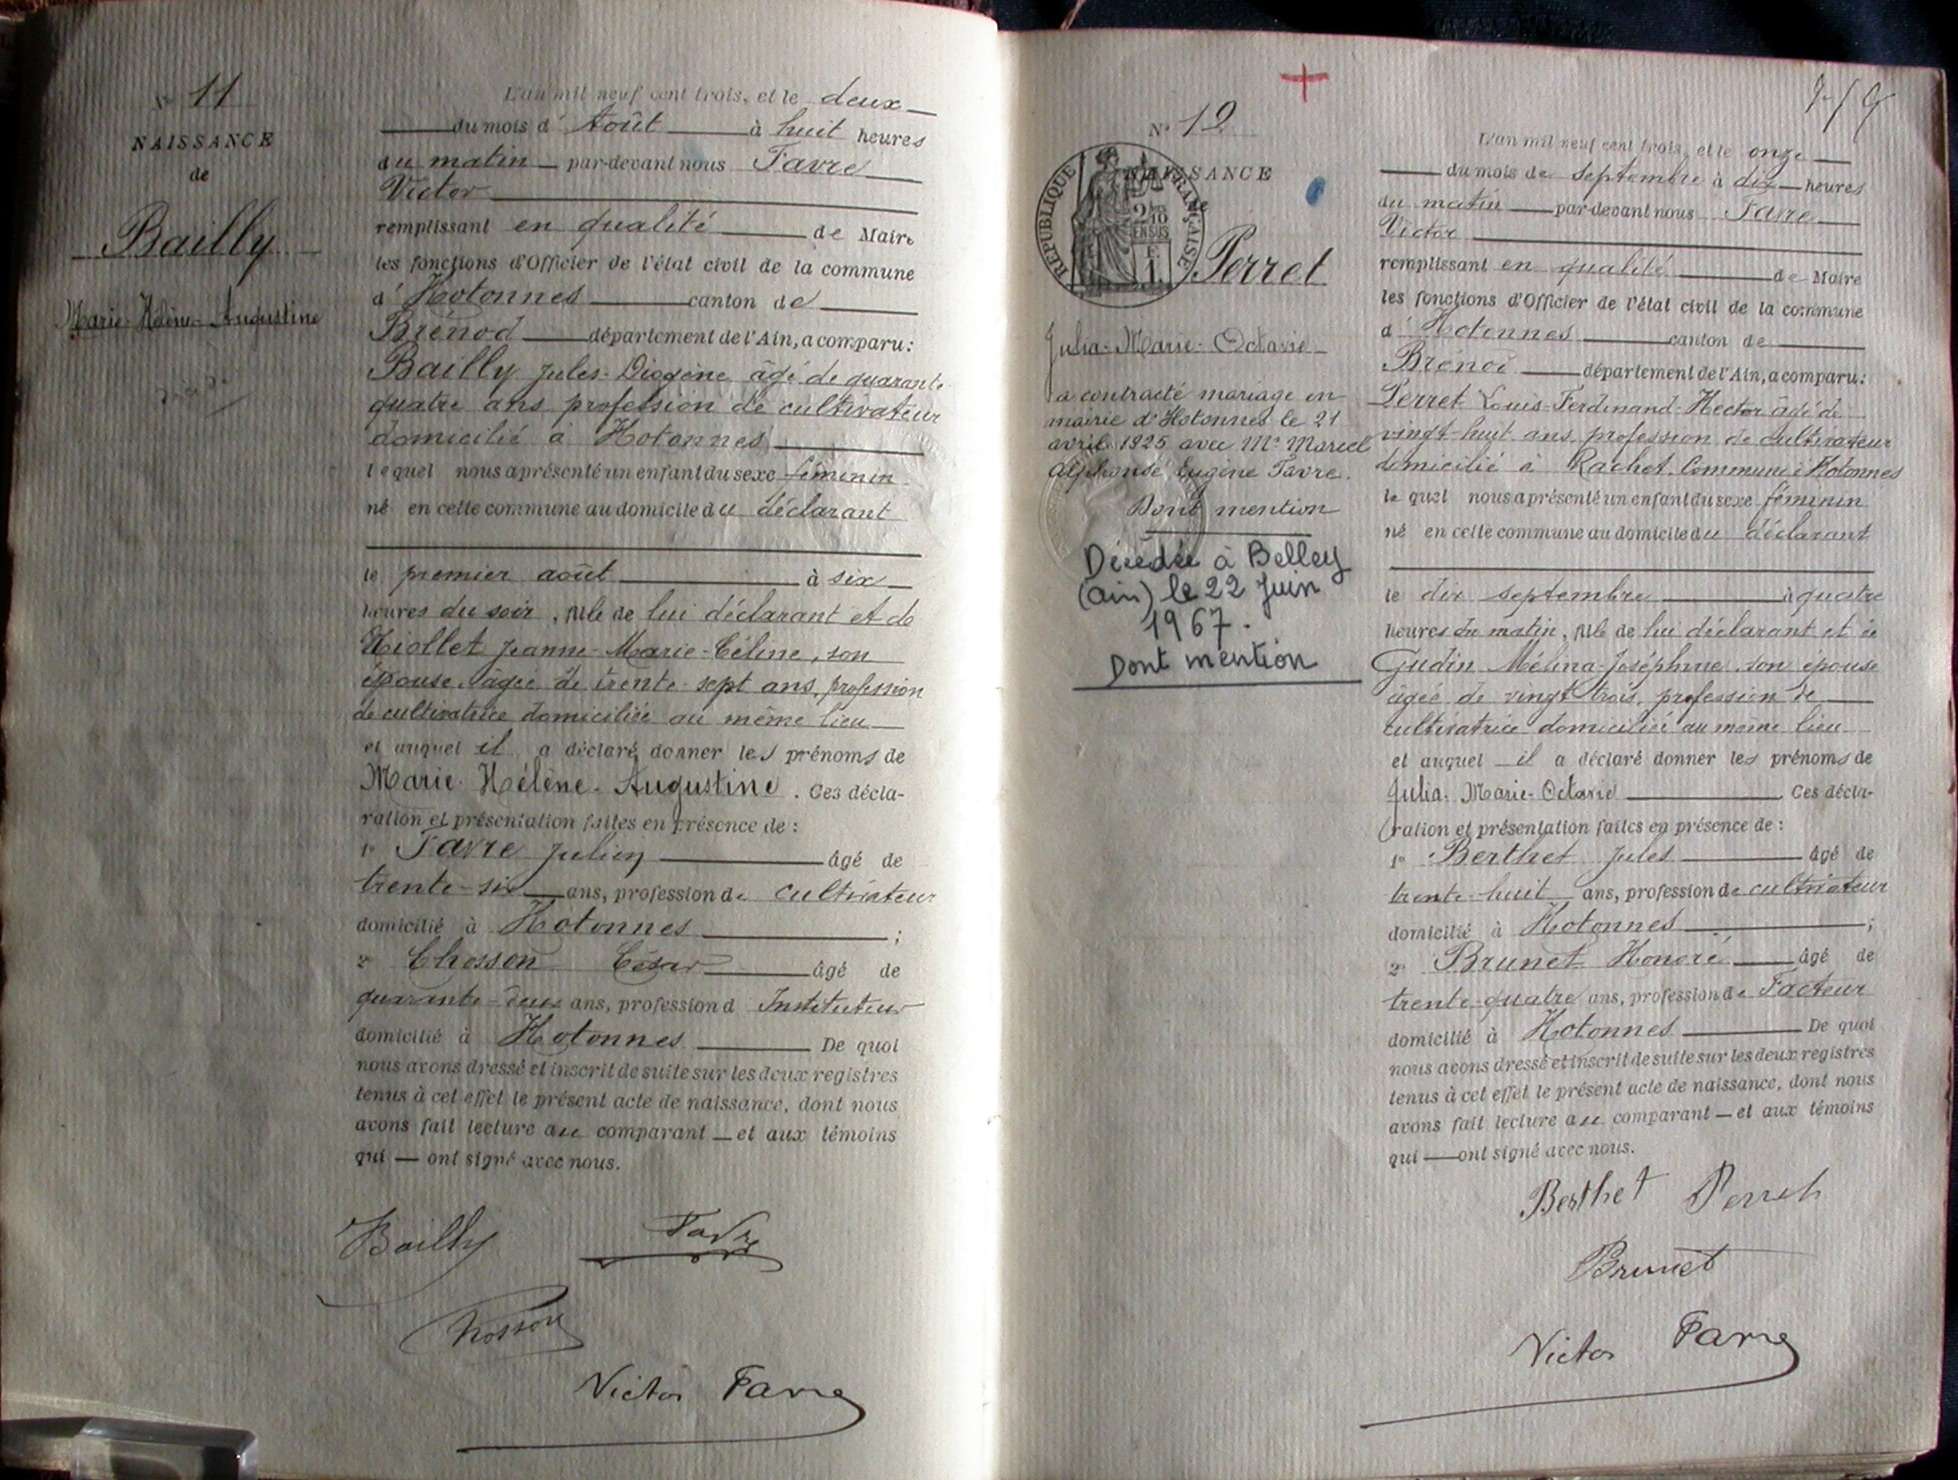 N° 11
NAISSANCE
de
Bailly
Marie-Hélène-Augustine
L'an mil neuf cent trois, et le deux
du mois d'Août à huit heures
du matin par-devant nous Favre
Victor
remplissant en qualité de Maire
les fonctions d'Officier de l'état civil de la commune
d'Hotonnes canton de
Brénod département de l'Ain, a comparu:
Bailly Jules-Diogène âgé de quarante
quatre ans profession de cultivateur
domicilié à Hotonnes
lequel nous a présenté un enfant du sexe féminin
né en cette commune au domicile du déclarant
le premier août à six
heures du soir, fille de lui déclarant et de
Hiollet Jeanne-Marie-Céline, son
épouse, âgée de trente-sept ans, profession
de cultivatrice domiciliée au même lieu
et auquel il a déclaré donner les prénoms de
Marie-Hélène-Augustine. Ces décla-
ration et présentation faites en présence de:
1° Favre Julien âgé de
trente-six ans, profession de cultivateur
domicilié à Hotonnes;
2° Chosson César âgé de
quarante-deux ans, profession d Instituteur
domicilié à Hotonnes De quoi
nous avons dressé et inscrit de suite sur les deux registres
tenus à cet effet le présent acte de naissance, dont nous
avons fait lecture au comparant et aux témoins
qui ont signé avec nous.
Bailly Favre
Chosson
Victor Favre
N° 12
NAISSANCE
de
RÉPUBLIQUE FRANÇAISE
Perret
Julia-Marie-Octavie
a contracté mariage en
mairie d'Hotonnes le 21
avril 1925 avec Mr Marcel
Alphonse Eugène Favre.
Dont mention
Décédée à Belley
(ain) le 22 Juin
1967.
Dont mention
L'an mil neuf cent trois, et le onze
du mois de septembre à dix heures
du matin par-devant nous Favre
Victor
remplissant en qualité de Maire
les fonctions d'Officier de l'état civil de la commune
d'Hotonnes canton de
Brénod département de l'Ain, a comparu:
Perret Louis-Ferdinand-Hector âgé de
vingt-huit ans, profession de cultivateur
domicilié à Rachet, Commune d'Hotonnes
le quel nous a présenté un enfant du sexe féminin
né en cette commune au domicile du déclarant
le dix septembre à quatre
heures du matin, fille de lui déclarant et de
Gudin Mélina-Joséphine, son épouse
âgée de vingt trois, profession de
cultivatrice domiciliée au même lieu
et auquel il a déclaré donner les prénoms de
Julia-Marie-Octavie Ces décla-
ration et présentation faites en présence de:
1° Berthet Jules âgé de
trente-huit ans, profession de cultivateur
domicilié à Hotonnes;
2° Brunet Honoré âgé de
trente-quatre ans, profession de Facteur
domicilié à Hotonnes De quoi
nous avons dressé et inscrit de suite sur les deux registres
tenus à cet effet le présent acte de naissance, dont nous
avons fait lecture au comparant et aux témoins
qui ont signé avec nous.
Berthet Perret
Brunet
Victor Favre